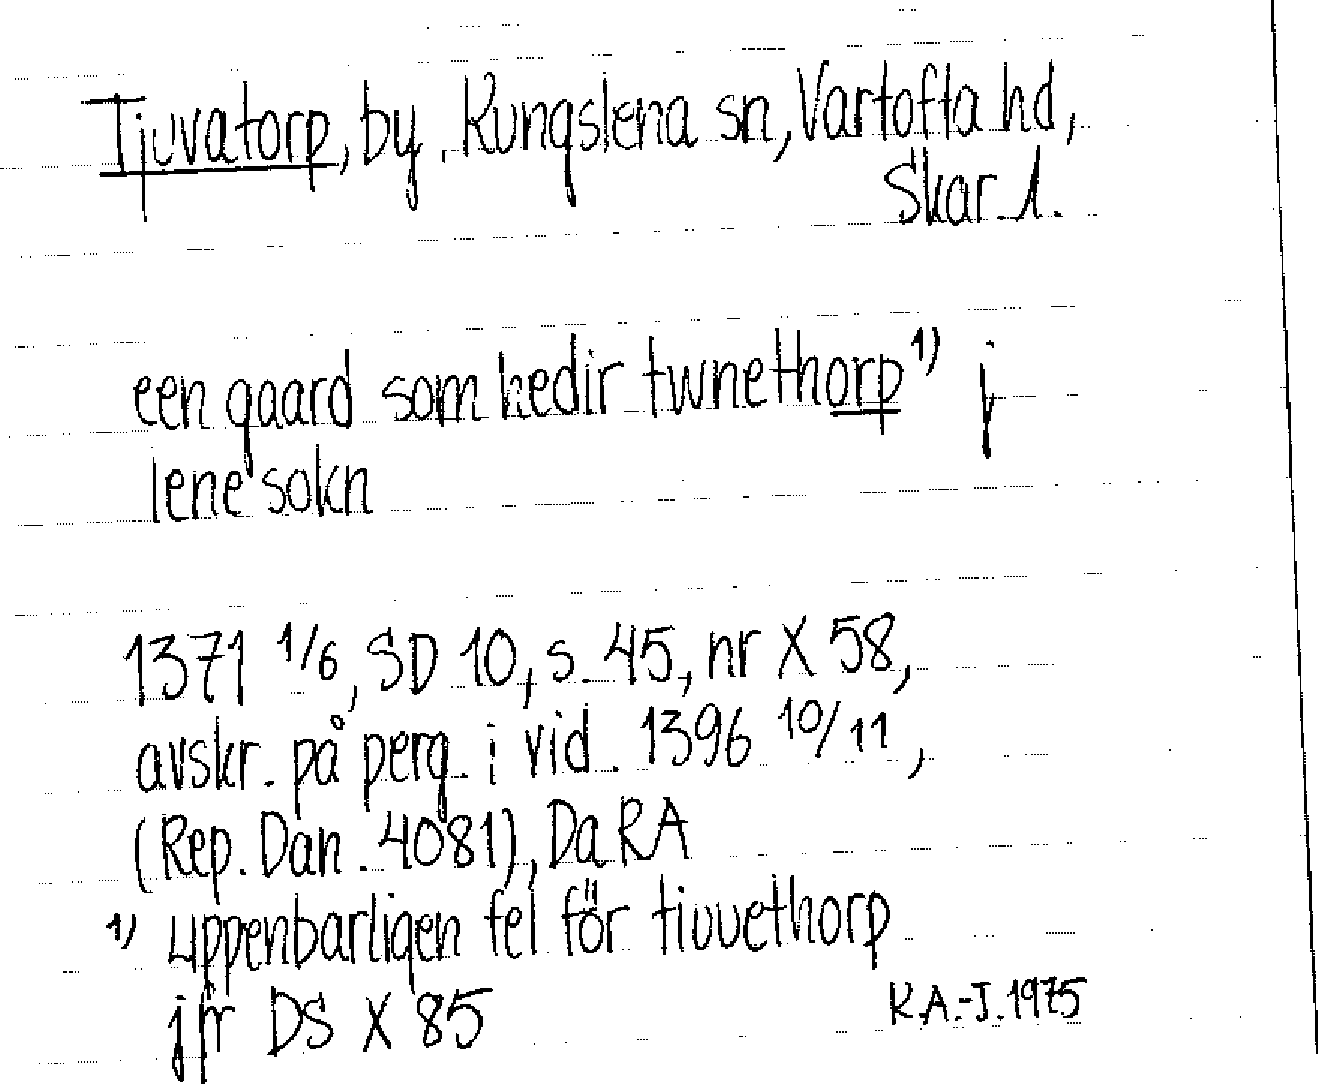 Tjuvatorp, by, Kungslena sn, Vartofta hd,
Skar. l.
een gaard som hedir twnethorp 1) j
lene sokn
1371 1/6, SD 10, s. 45, nr X 58,
avskr. på perg. i vid. 1396 10/11,
(Rep. Dan. 4081), DaRA
1) uppenbarligen fel för tiuuethorp
jfr DS X 85
K.A.-J. 1975